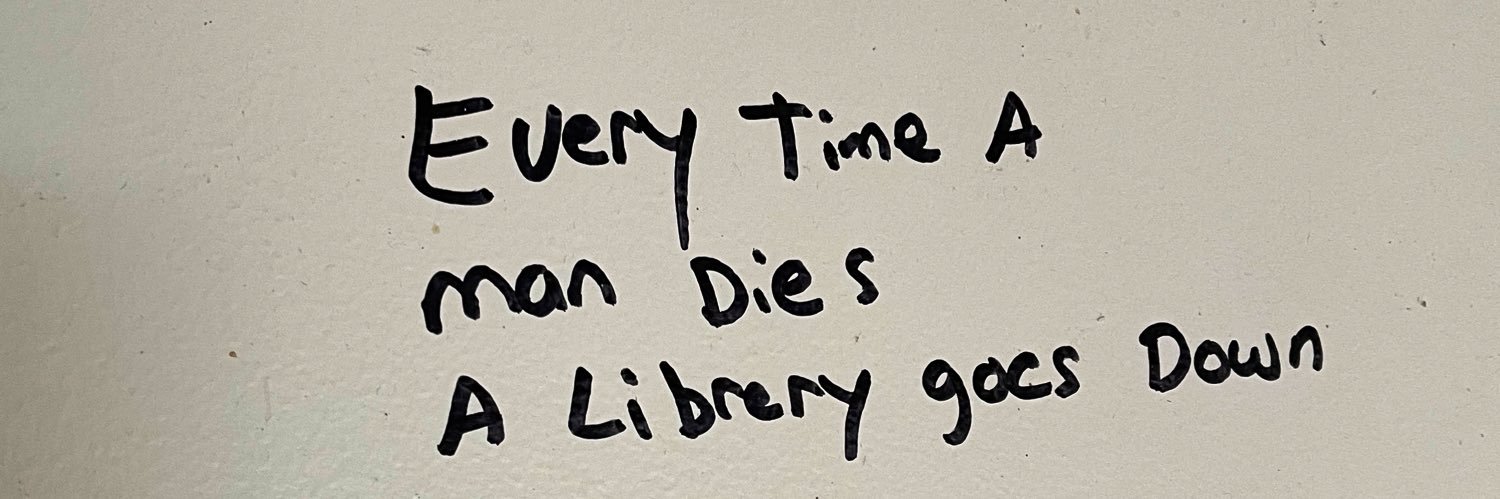 Every Time A
man Dies
A Librery goes Down